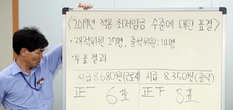 <2019년 적용 최저임금 수준에 대한 표결>
·재적위원 27명, 출석위원: 14명
·투표결과
시급 8,680원(근로자) 시급 8,350원(공익)
正一 6표 正下 8표